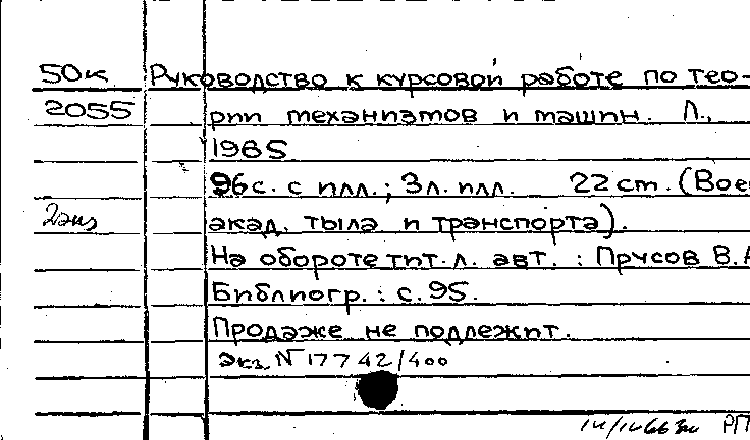 50к Руководство к курсовой работе по тео-
2055 рии механизмов и машин. Л.,
1965
96с. с илл.; 3л. илл. 22 cm. (Вое
2 экз акад. тыла и транспорта).
На обороте тит. л. авт. : Прусов В.А
Библиогр. : с. 95.
Продаже не подлежит.
Экз. N 17742/400
РП